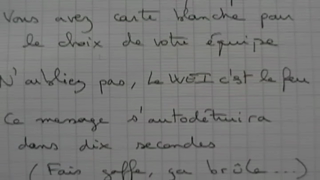 Vous avez carte blanche pour
le choix de votre équipe
N'oubliez pas, Le WEI c'est le feu
Ce message s'autodétruira
dans dix secondes
(Fais gaffe, ça brûle...)